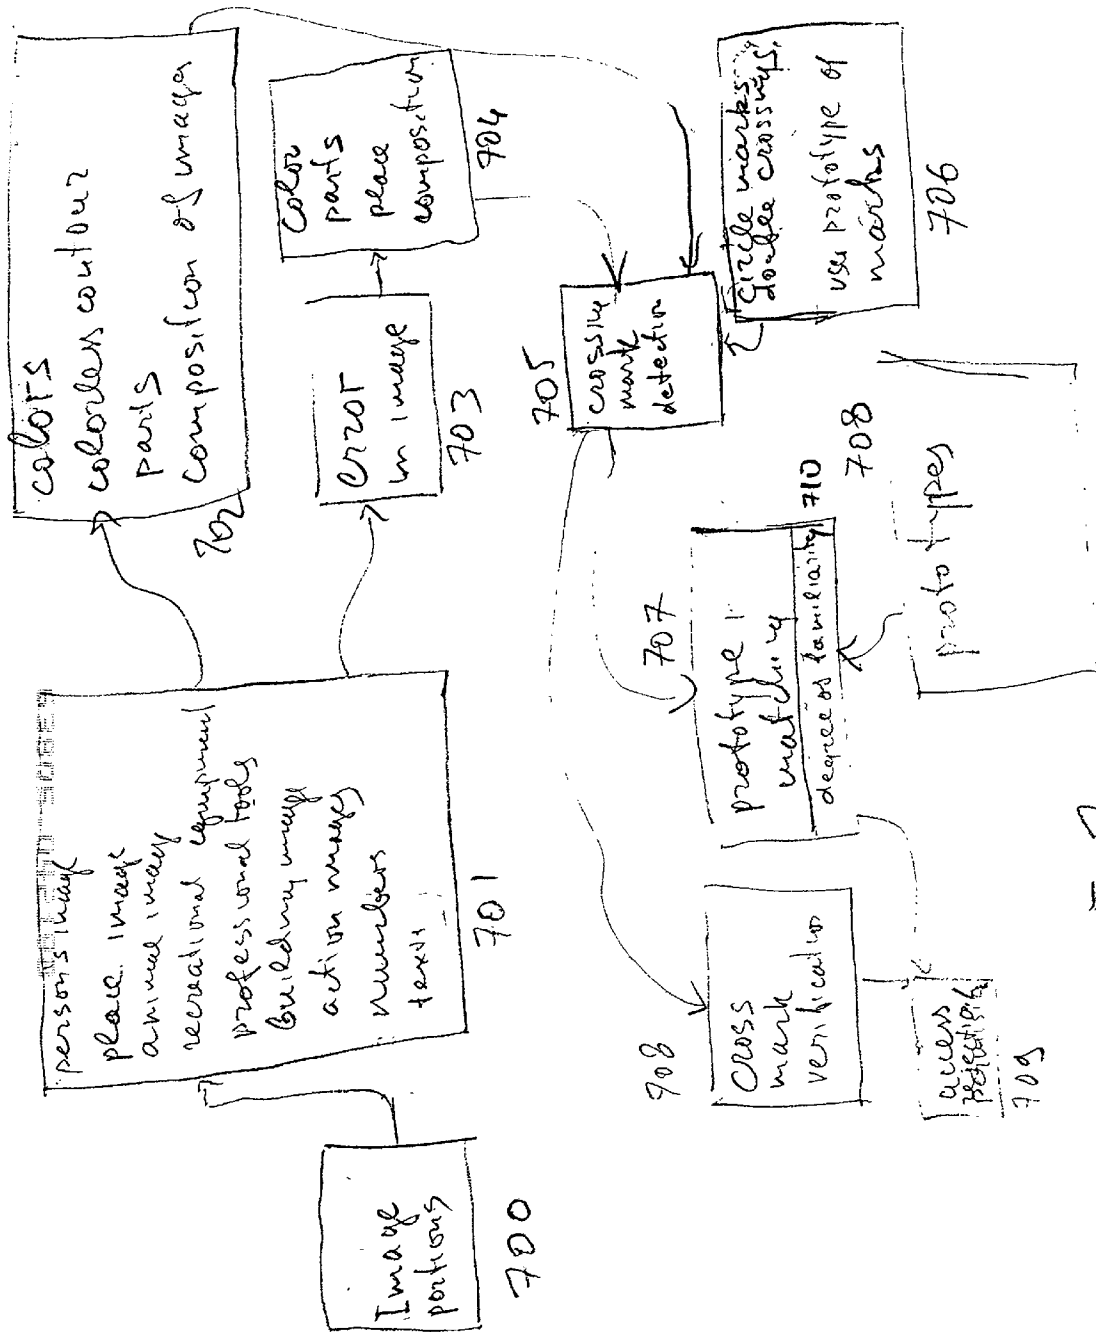 Image
portions
700
persons image
place image
animal image
recreational equipment
professional tools
building image
action images
numbers
texts
701
colors
colorless contour
parts
composition of images
702
error
in image
703
color
parts
place
composition
704
crossing
mark
detection
705
circle marks
double crossings,
use prototype of
marks
706
prototype
matching
degree of familiarity
707
710
708
prototypes
cross
mark
verification
708
access
709